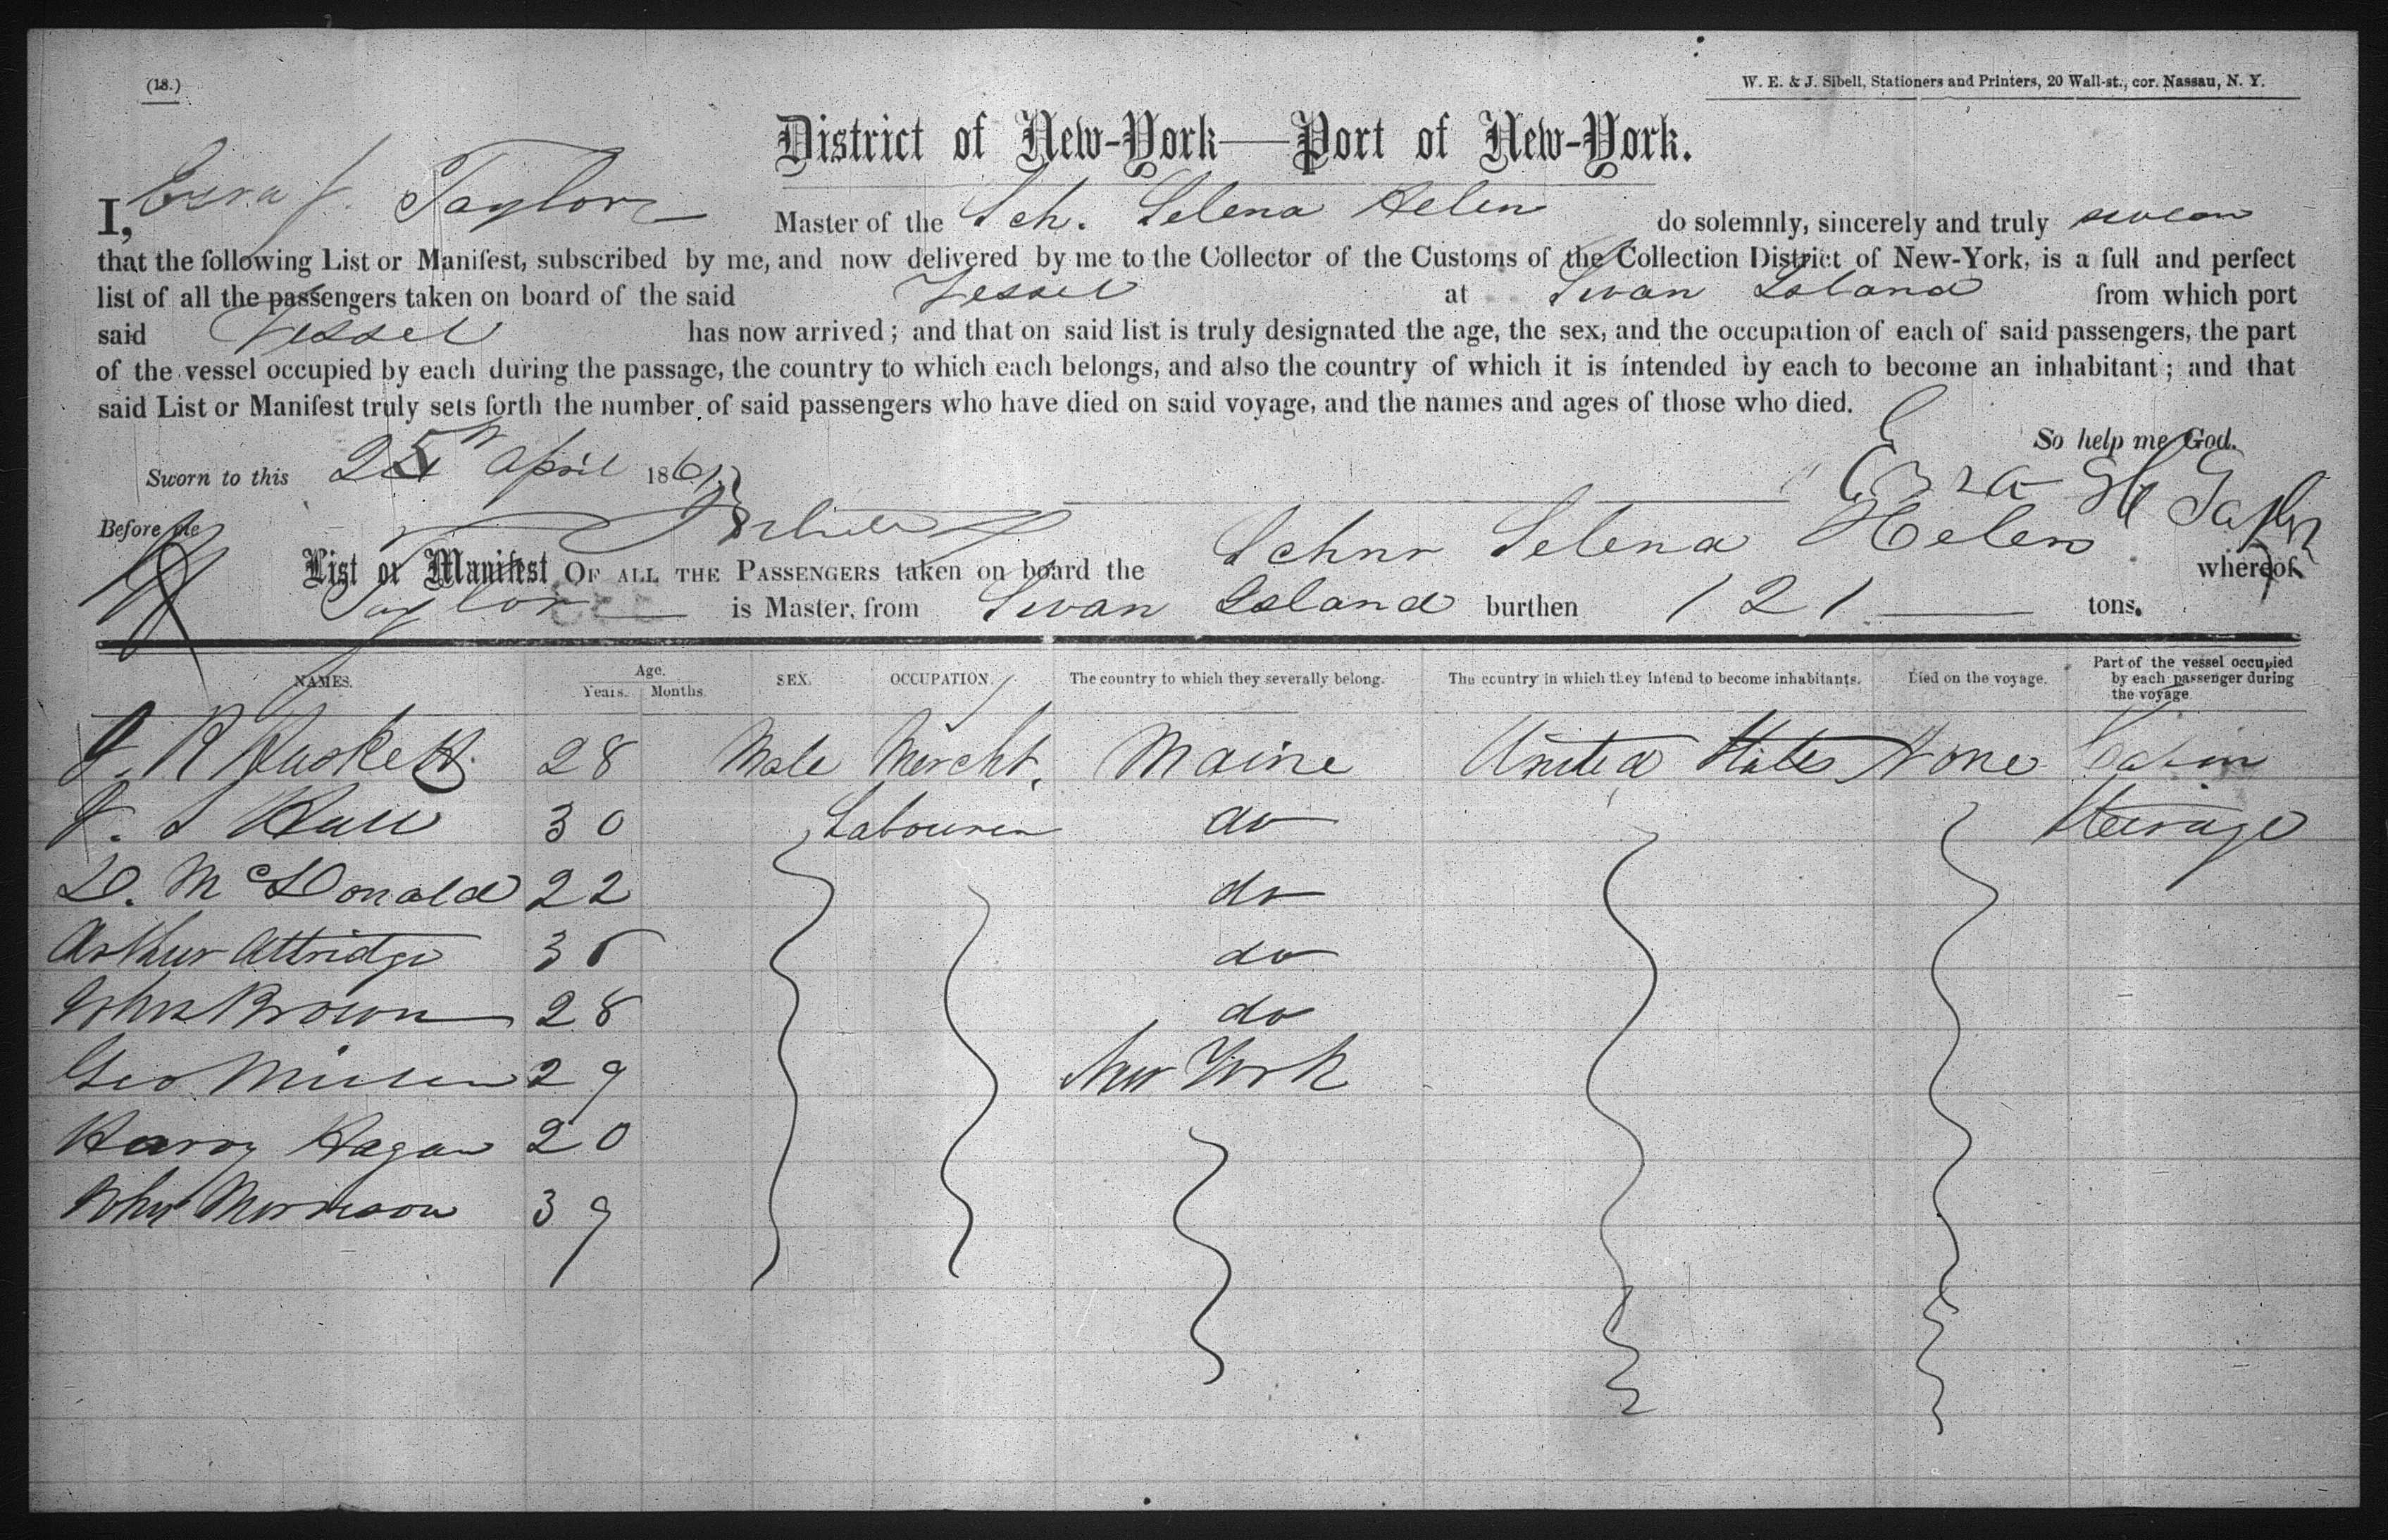 (18.)
W. E. & J. Sibell, Stationers and Printers, 20 Wall-st., cor. Nassau, N. Y.
District of New-York—Port of New-York.
I, Ezra J. Taylor Master of the Sch. Selena Helen do solemnly, sincerely and truly swear
that the following List or Manifest, subscribed by me, and now delivered by me to the Collector of the Customs of the Collection District of New-York, is a full and perfect
list of all the passengers taken on board of the said Vessel at Swan Island from which port
said Vessel has now arrived; and that on said list is truly designated the age, the sex, and the occupation of each of said passengers, the part
of the vessel occupied by each during the passage, the country to which each belongs, and also the country of which it is intended by each to become an inhabitant; and that
said List or Manifest truly sets forth the number of said passengers who have died on said voyage, and the names and ages of those who died.
So help me God.
Sworn to this 25th April 1861 Ezra Taylor
Before me
List or Manifest OF ALL THE PASSENGERS taken on board the Schnr Selena Helen whereof
Taylor is Master, from Swan Island burthen 121 tons.
NAMES. Age. Years. Months. SEX. OCCUPATION. The country to which they severally belong. The country in which they intend to become inhabitants. Died on the voyage. Part of the vessel occupied by each passenger during the voyage
J. R Huskett 28 Male Mercht. Maine United States None Cabin
J. S 30 Labourer do Steerage
D. McDonald 22 do
Arthur Attridge 35 do
John Brown 28 do
Geo 29 New York
Harry Hagan 20
John Morrison 39